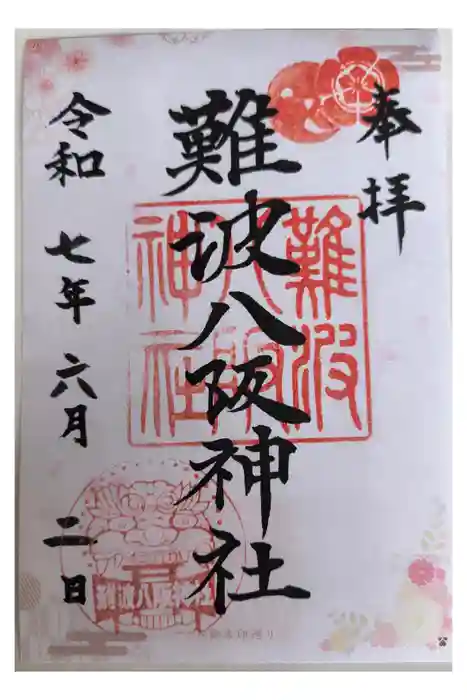 奉拝
難波八阪神社
難波八阪神社
令和七年六月二日
難波八阪神社